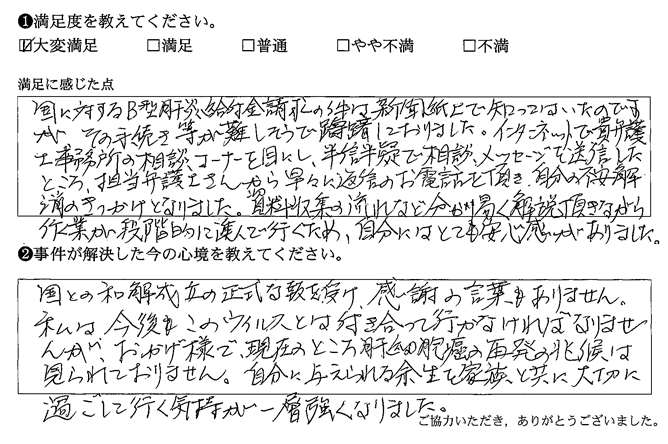 ❶満足度を教えてください。
☑大変満足 □満足 □普通 □やや不満 □不満
満足に感じた点
国に対するB型肝炎給付金請求の件は新聞紙上で知ってはいたのです
が、その手続き等が難しそうで躊躇しておりました。インターネットで貴弁護
士事務所の相談コーナーを目にし、半信半疑で相談メッセージを送信した
ところ、担当弁護士さんから早々に返信のお電話を頂き自分の不安解
消のきっかけとなりました。資料収集の流れなど分かり易く解説頂きながら
作業が段階的に進んで行くため、自分にはとても安心感がありました。
❷事件が解決した今の心境を教えてください。
国との和解成立の正式な報を受け、感謝の言葉もありません。
私は今後もこのウィルスとは付き合って行かなければなりませ
んが、おかげ様で、現在のところ肝細胞癌の再発の兆候は
見られておりません。自分に与えられる余生を家族と共に大切に
過ごして行く気持が一層強くなりました。
ご協力いただき、ありがとうございました。